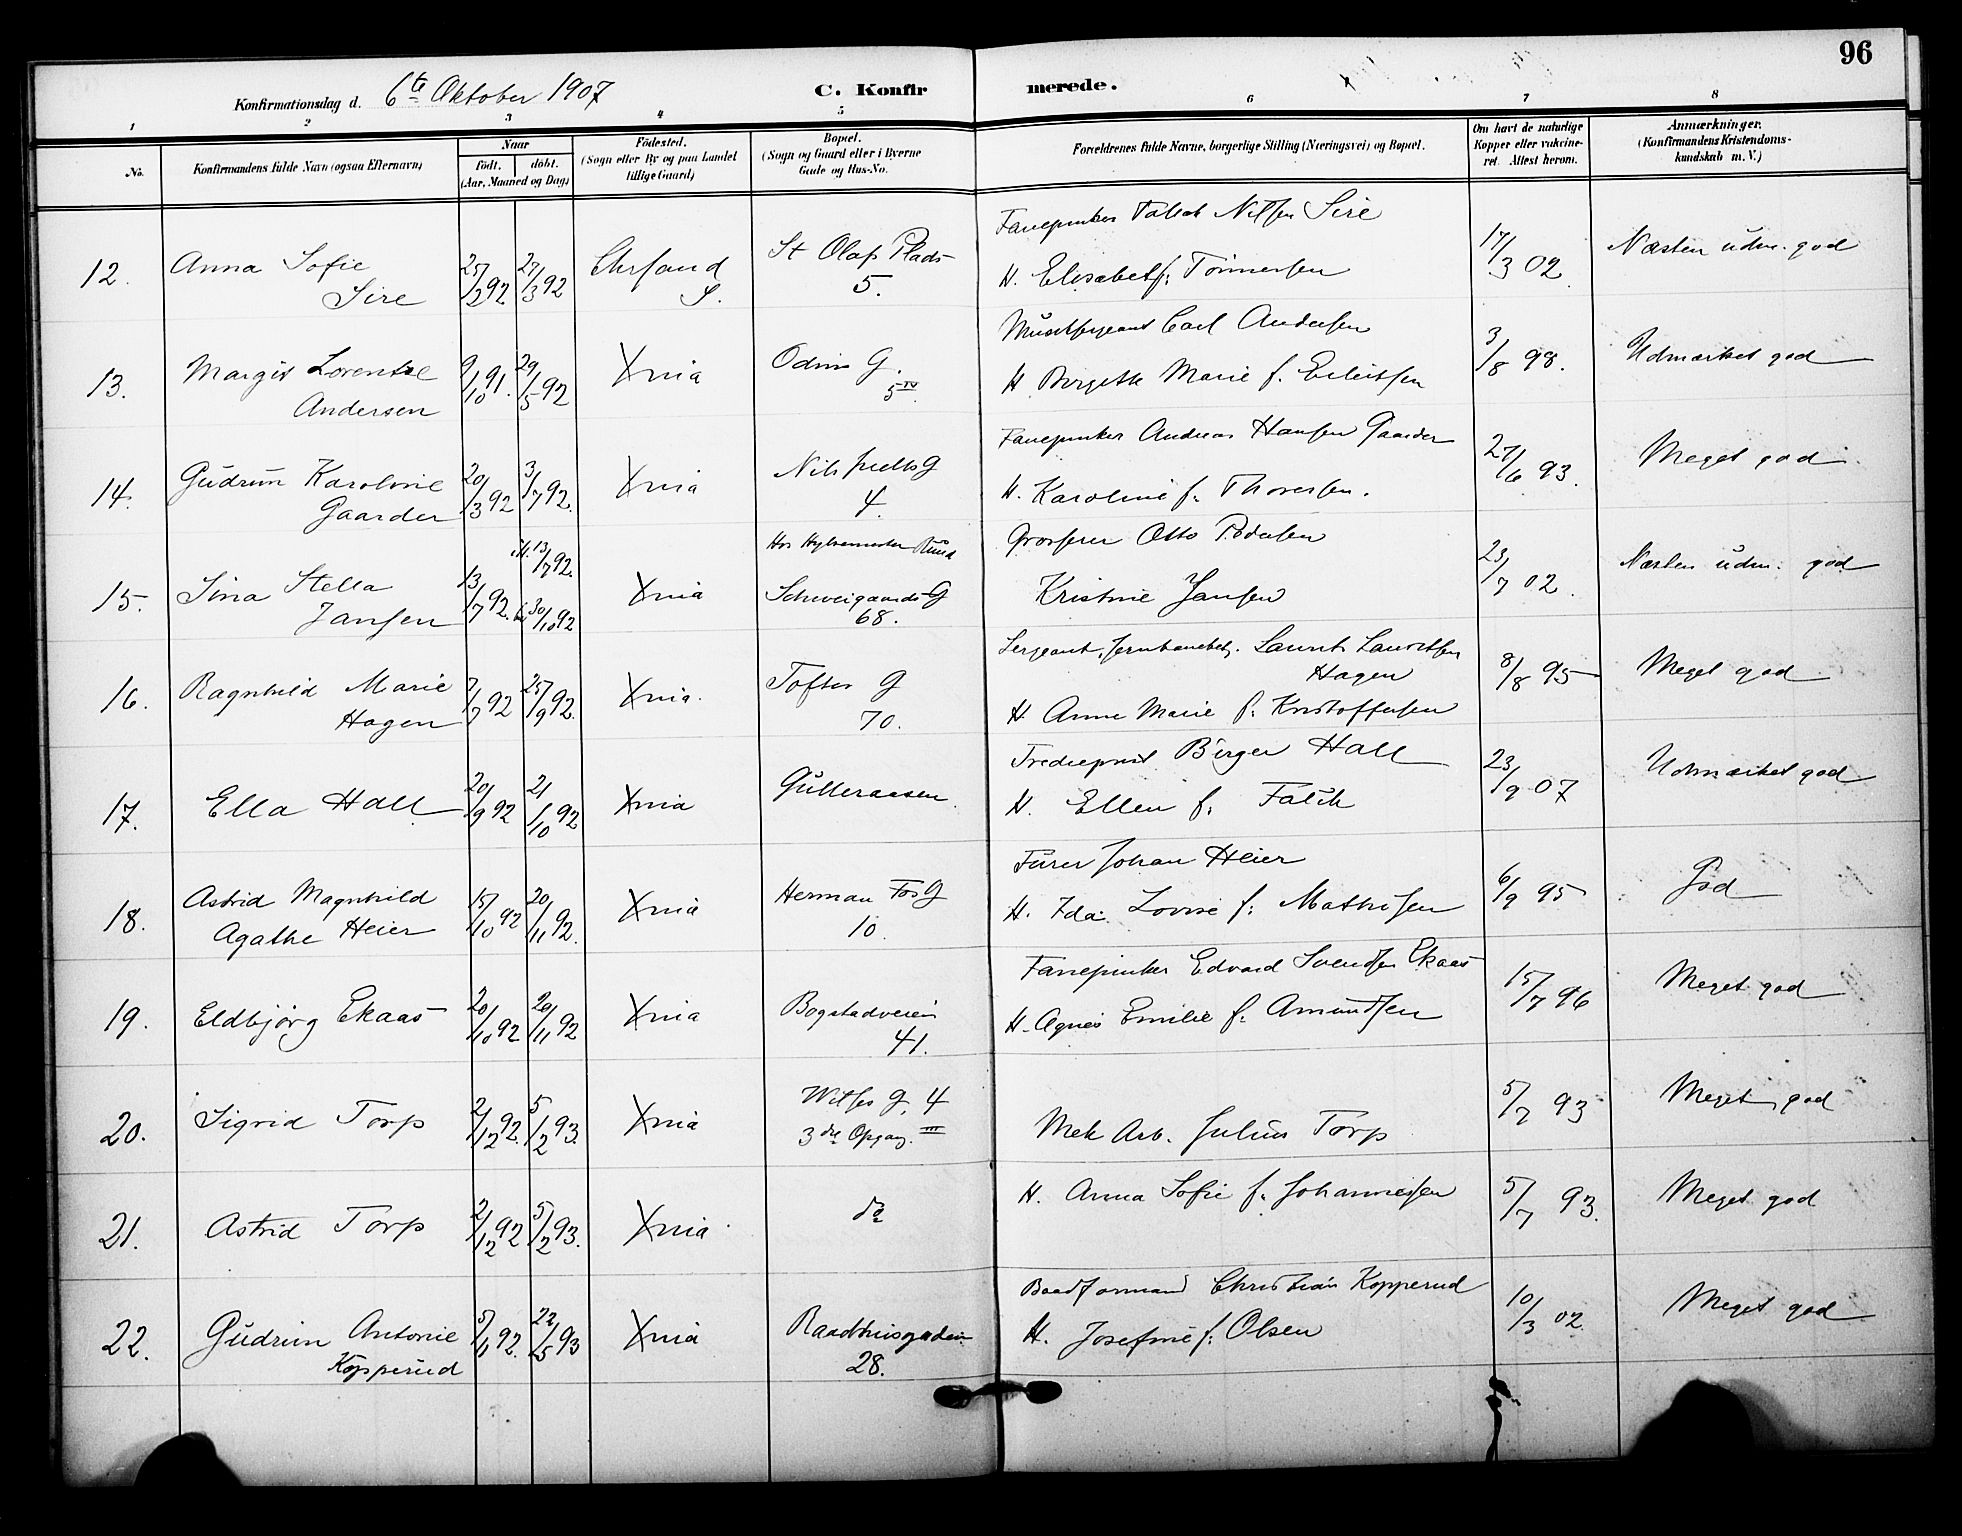 96
Konfirmationsdag d. 6te Oktober 1907
C. Konfir merede.
1 2 3 4 5 6 7 8
No.
Konfirmandens fulde Navn (ogsaa Efternavn)
Naar
født. døbt.
(Aar, Maaned og Dag)
Fødested.
(Sogn eller By og paa Landet
tillige Gaard)
Bopæl.
(Sogn og Gaard eller i Byerne
Gade og Hus-No.
Forældrenes fulde Navne, borgerlige Stilling (Næringsvei) og Bopæl.
Om havt de naturlige
Kopper eller vaccine-
ret. Attest herom.
Anmærkninger.
(Konfirmandens Kristendoms-
kundskab m. V.)
12. Anna Sofie
Sire
25/2 92 27/3 92
Chrsand
S.
St Olafs Plads
5.
Nilsen Sire
H. Elisabet f. Tønnessen
17/3 02
Næsten udm. god
13. Margit Lorentze
Andersen
9/10 91. 29/5 92
Xnia
Odins G.
5 IV
Carl Andersen
H Birgitte Marie f. Eilertsen
3/8 98.
Udmærket god
14. Gudrun Karoline
Gaarder
20/3 92 3/7 92.
Xnia
Nils Juels G
4.
Andreas Hansen Gaarder
H. Karoline f. Thoresen.
27/6 93.
Meget god
15. Sina Stella
Jansen
13/7 92. H. 13/7 92.
30/10 92
Xnia
Hos Ruud
Schweigaards G
68.
Grosserer Otto Pedersen
Kristine Jansen
23/7 02.
Næsten udm. god
16. Ragnhild Marie
Hagen
7/7 92 25/9 92.
Xnia.
Toftes G
70.
Sergeant, Laurits Lauritsen
Hagen
H. Anne Marie f. Kristoffersen
8/8 95
Meget god
17. Ella Hall
20/9 92 21/10 92
Xnia
Gulleraasen.
Birger Hall
H. Ellen f. Falck
23/9 07
Udmærket god
18. Astrid Magnhild
Agathe Heier
15/10 92 20/11 92.
Xnia
Herman Fos G
10.
Furer Johan Heier
H. Ida Lovise f. Mathisen
6/9 95
God
19. Eldbjørg Ekaas
20/10 92 20/11 92
Xnia
Bogstadveien
41.
Edvard Svendsen Ekaas
H. Agnes Emilie f. Amundsen
15/7 96
Meget god
20. Sigrid Torp
2/12 92. 5/2 93.
Xnia
Wilses G. 4
3die Opgang. III
Mek Arb. Julius Torp
5/7 93
Meget god
21. Astrid Torp
2/12 92 5/2 93.
Xnia.
do
H. Anna Sofie f. Johannessen
5/7 93.
Meget god
22. Gudrun Antonie
Kopperud
5/11 92. 22/5 93
Xnia
Raadhusgaden
28.
Baadformand Christian Kopperud
H. Josefine f. Olsen
10/3 02.
Meget god